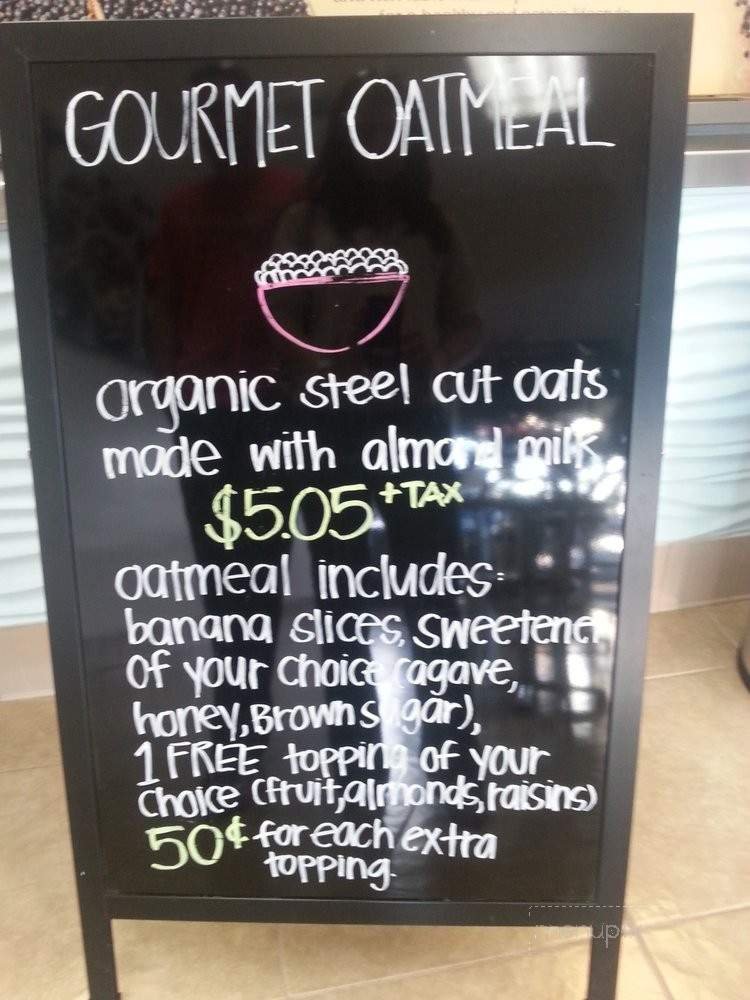 GOURMET OATMEAL
organic steel cut oats
made with almond milk
$5.05 +TAX
oatmeal includes:
banana slices, sweetener
of your choice (agave,
honey, Brown sugar),
1 FREE topping of your
choice (fruit, almonds, raisins)
50¢ for each extra
topping.